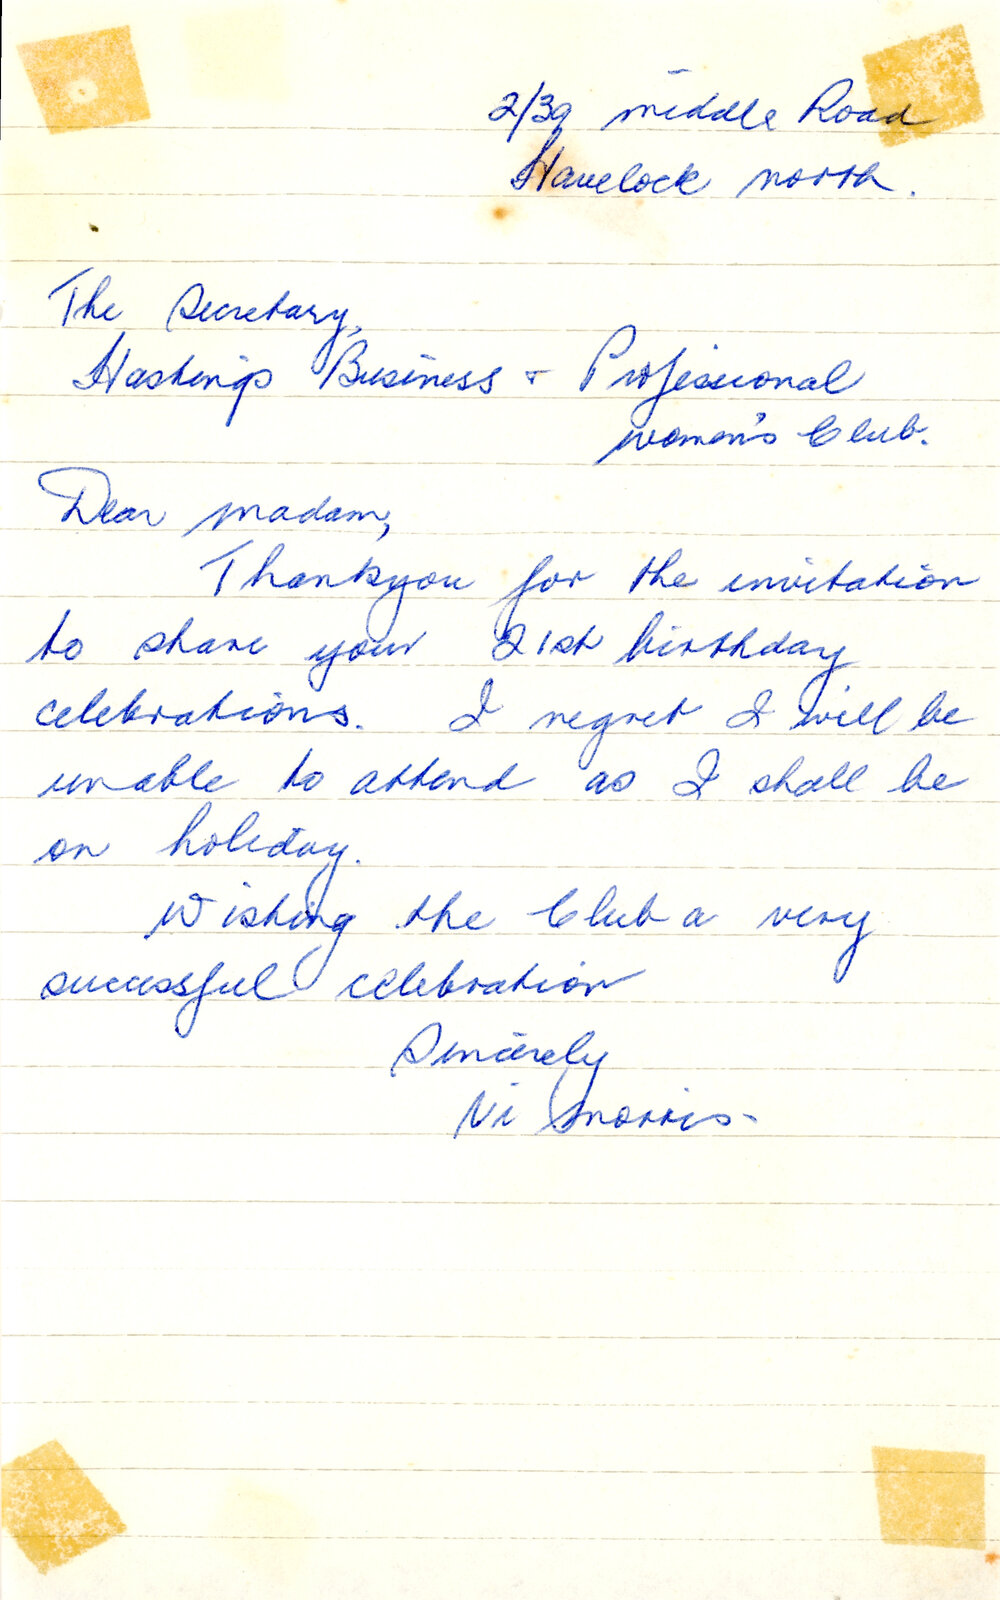 2/39 Middle Road
Havelock North.
The Secretary,
Hastings Business + Professional
Women's Club.
Dear Madam,
Thankyou for the invitation
to share your 21st birthday
celebrations. I regret I will be
unable to attend as I shall be
on holiday.
Wishing the Club a very
successful celebration
Sincerely
Vi Morris-